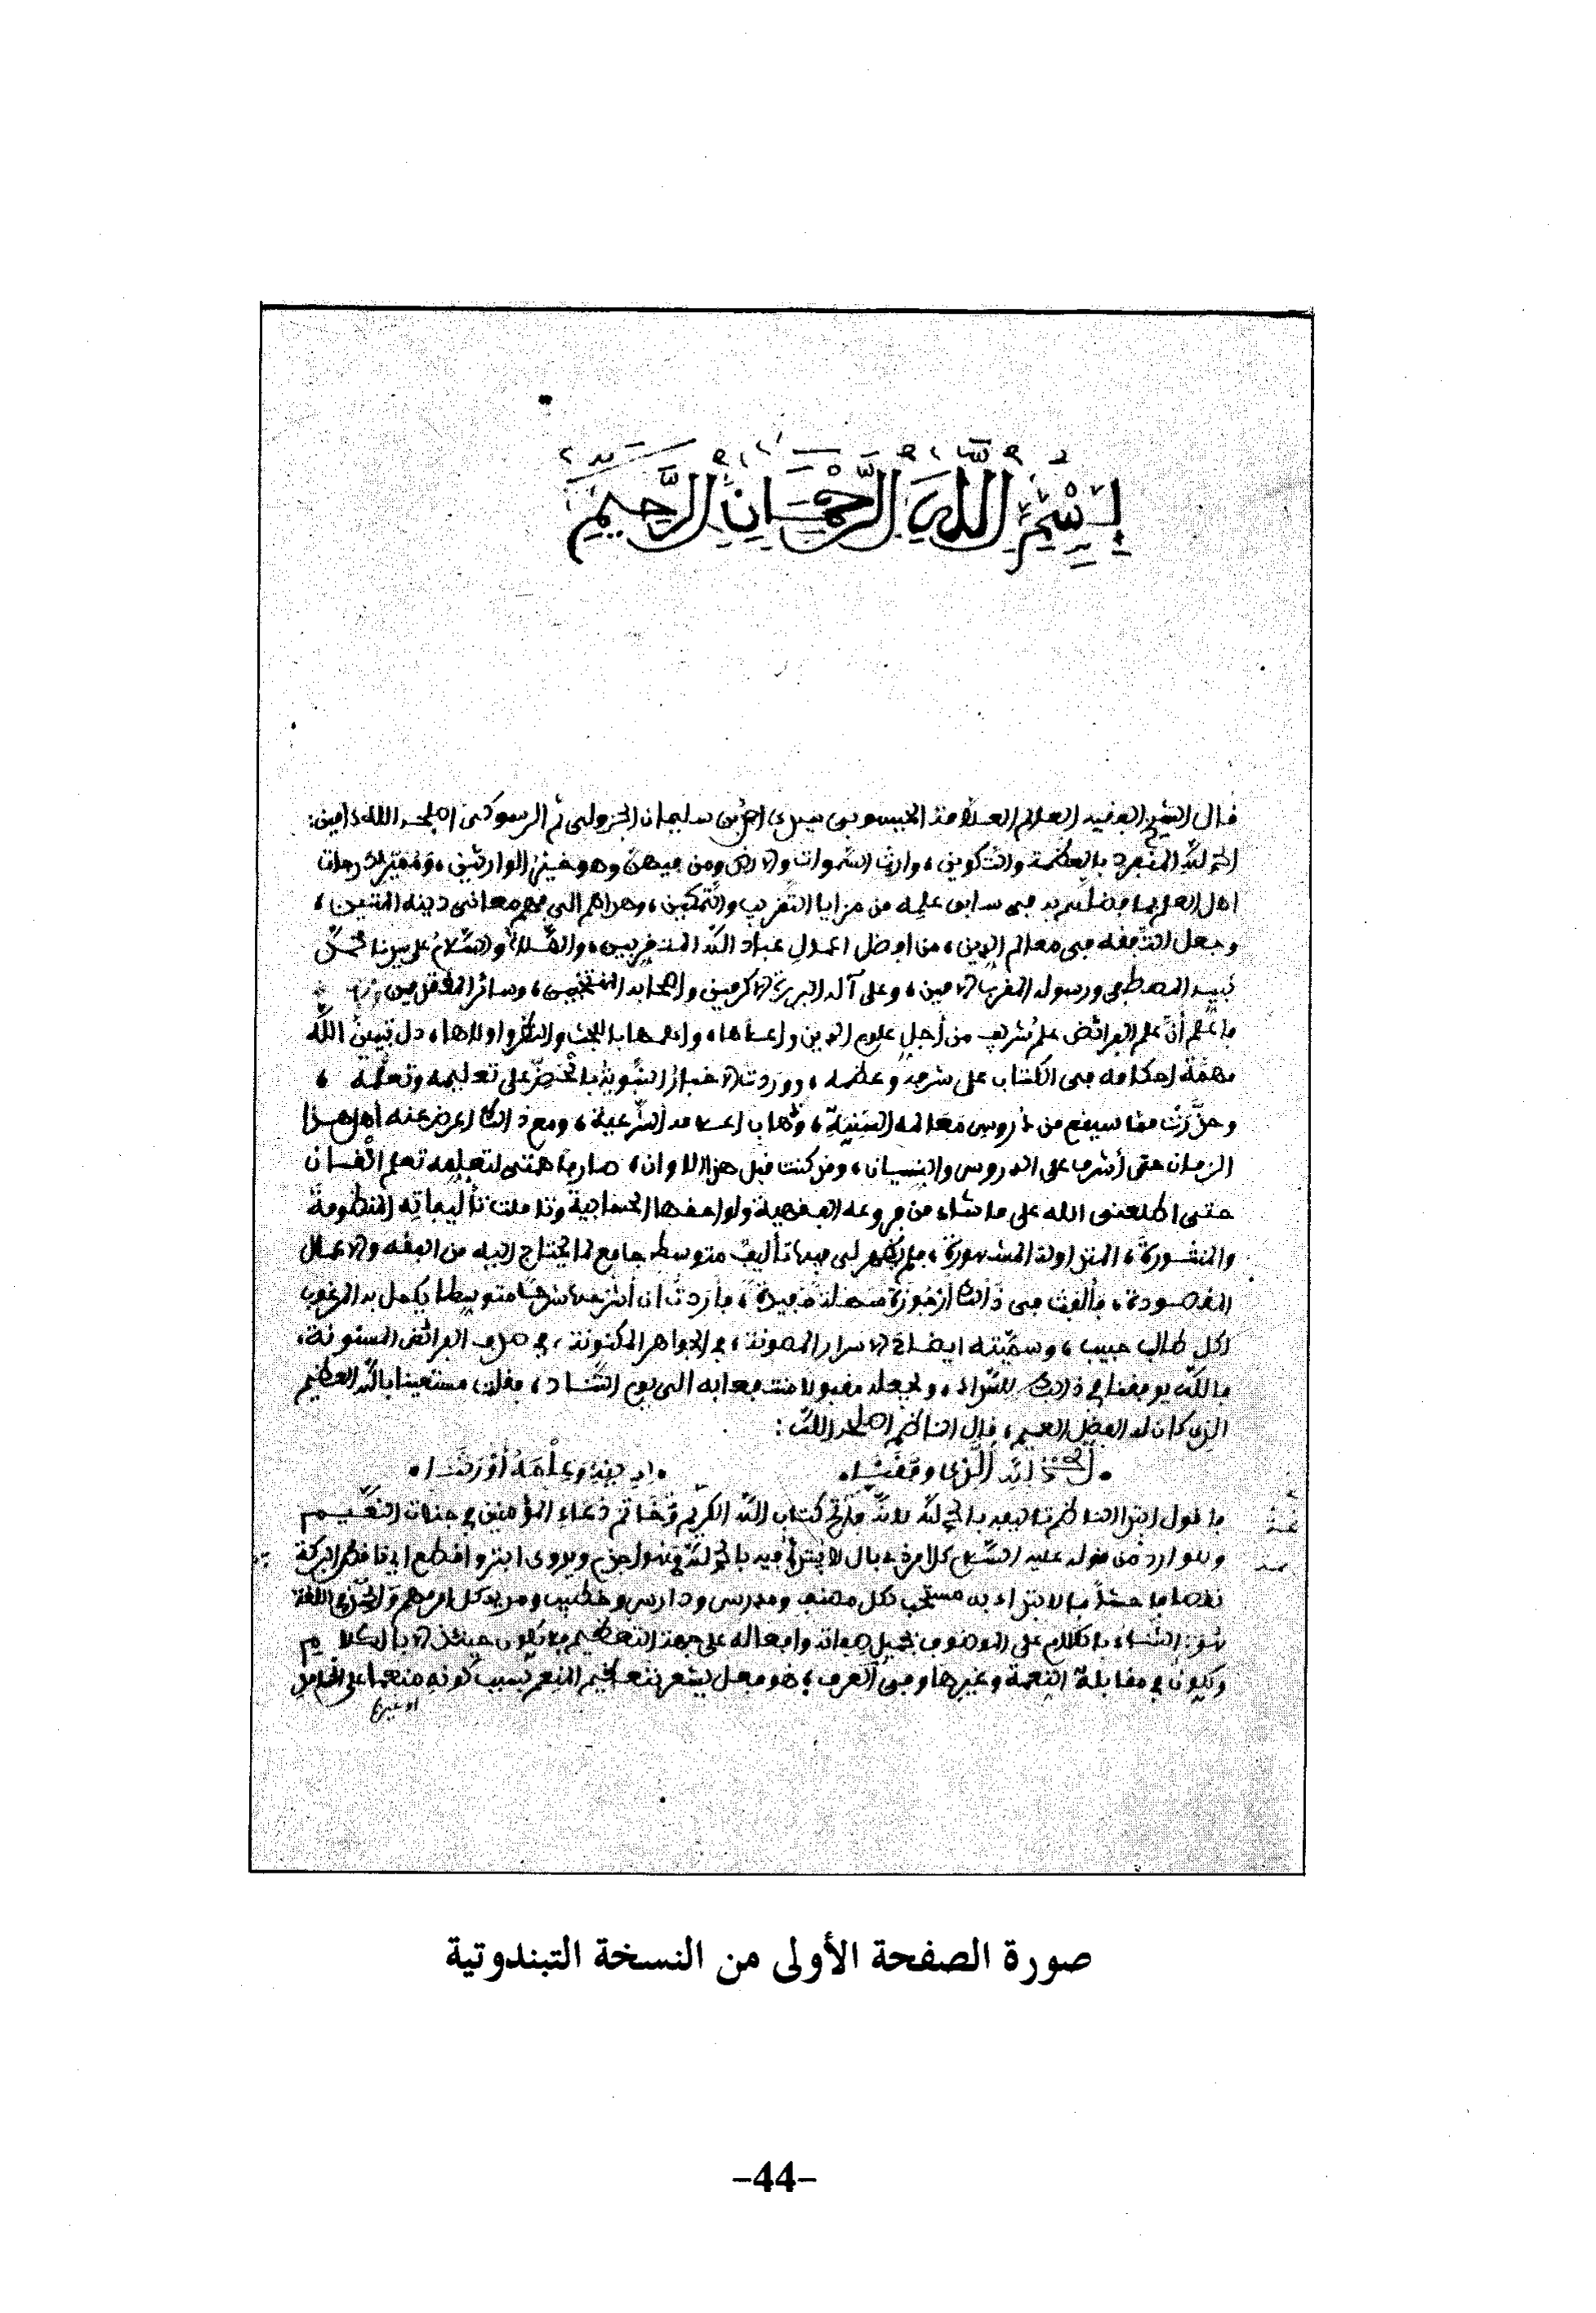 بِسْمِ اللَّهِ الرَّحْمَانِ الرَّحِيمِ
قال الشيخ الفقيه العالم العلامة الحيسوبي سيدي احمد بن سليمان الجزولي ثم الرسموكي اصلحه الله ءامين:
الحمد لله المنفرد بالعظمة والتكوين، وارث السموات والارض ومن فيهن وهو خير الوارثين، درجات
اهل العلم بما في سابق علمه من مزايا التقريب والتمكين، وهداهم الى فهم معاني دينه المتين،
وجعل التفقه في معالم الدين، من افضل اعمال عباد الله المتقربين، والصلاة والسلام على سيدنا محمد
نبيه المصطفى ورسوله المقرب الامين، وعلى آله البررة الاكرمين واصحابه المنتخبين، وسائر
فاعلم أنّ علم الفرائض علم شريف من أجل علوم الدين واعلاها، بالبحث والنظر واولاها، دل تبيين اللّه
احكامه في الكتاب على شرفه وعظمه، ووردت الاخبار النبوية بالحض على تعليمه وتعلّمه،
وحذّرت مما سيقع من دروس معالمه السنية، وذهاب الشرعية، ومع ذالك اعرض عنه أهل هذا
الزمان حتى أشرف على الدروس والنسيان، وقد كنت قبل هذا الاوان، همتي لتعليمه تعلم اتقان
حتى اطلعني الله على ما شاء من فروعه الفقهية ولواحقها الحسابية وتاملت تأليفاته المنظومة
والمنثورة، المتداولة المشهورة، فلم يظهر لي فيها تأليف متوسط جامع لما يحتاج اليه من الفقه والاعمال
المقصودة، فألفت في ذالك أرجوزة سهلة مفيدة، فأردت ان أشرحها شرحا متوسطا يكمل به المرغوب
لكل طالب حبيب، وسمّيته ايضاح الاسرار المصونة، في الجواهر المكنونة، في صدف الفرائض المسنونة،
فاللّه يوفقنا في ذالك للسداد، ويجعله مقبولا منتفعا به الى يوم التناد، فقلت مستعينا باللّه العظيم
الذي كان له الفضل العميم، قال الناظم اصلحه اللّه:
الحمد لله الذي وفقنا لدينه وعلمه أورثنا
فاقول ابتدا الناظم تاليفه بالحمد لله لانه فاتح كتاب اللّه الكريم وخاتم دعاء المؤمنين في جنات النعيم
وللوارد من قوله عليه السلام كل امر ذي بال لا يبتدأ فيه بالحمد لله فهو اجذم ويروى ابتر واقطع اي ناقص البركة
فالابتداء به مستحب لكل مصنف ومدرس ودارس وخطيب ومريد كل امر مهم والحمد في اللغة
هو الثناء بالكلام على الموصوف بجميل صفاته وافعاله على جهة التعظيم فلا يكون حينئذ الا بالكلام
ويكون في مقابلة النعمة وغيرها وفي العرف هو فعل يشعر بتعظيم المنعم بسبب كونه منعما على الحامد
او غيره
صورة الصفحة الأولى من النسخة التبندوتية
-44-